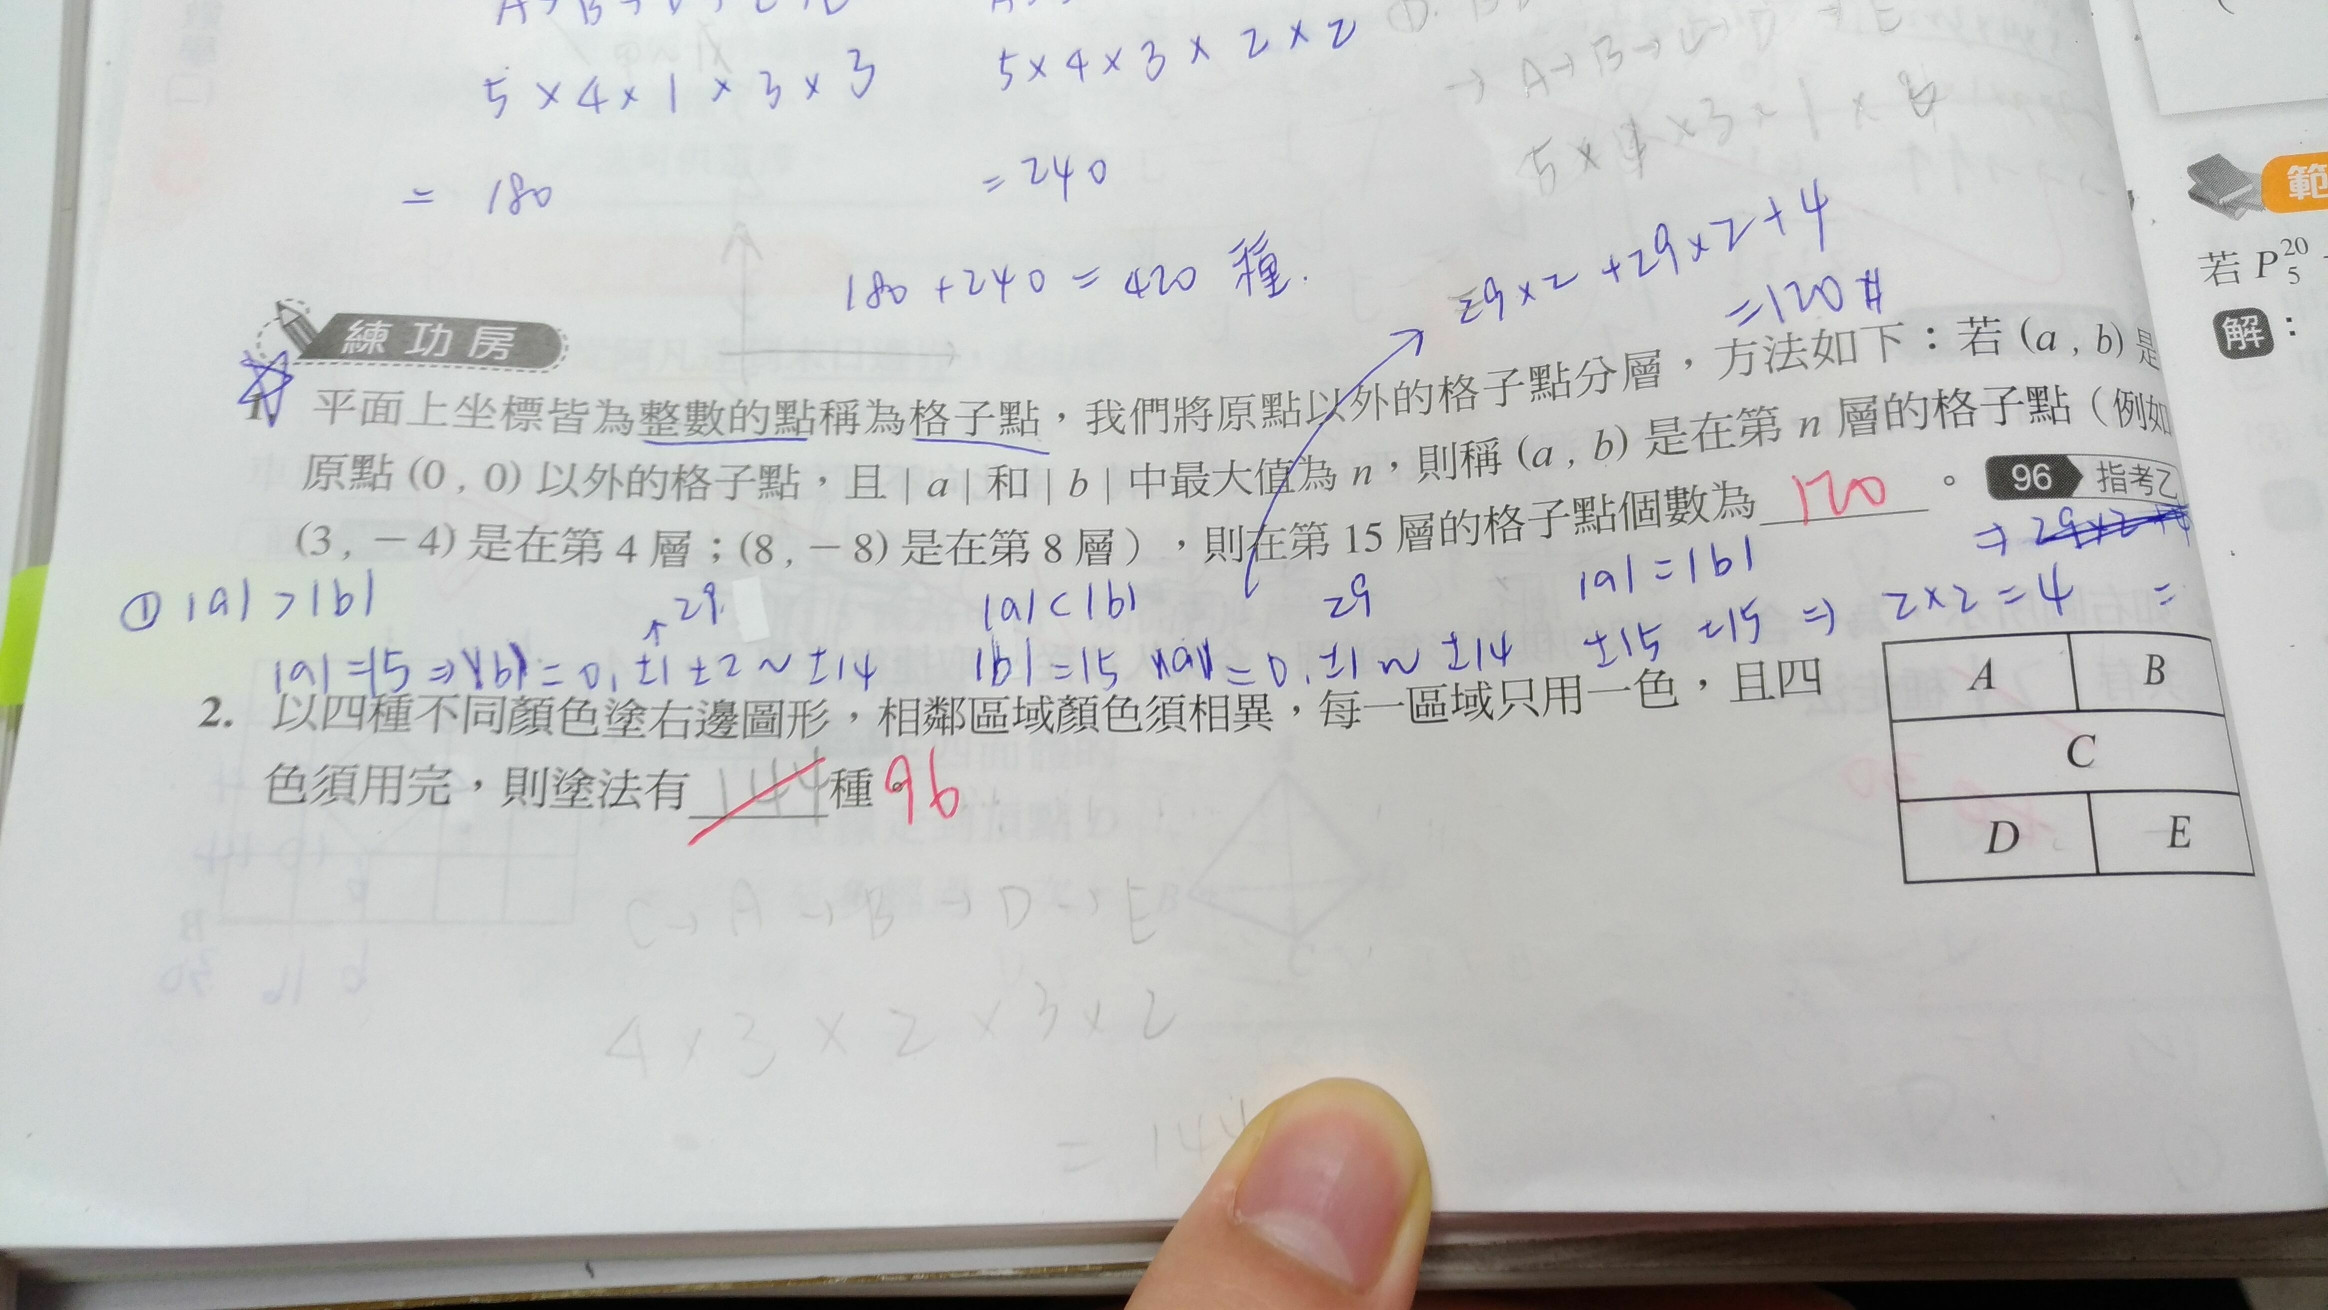 5×4×1×3×3
5×4×3×2×2
→ A→B→C→D → E
= 180
= 240
180+240 = 420 種.
29×2+29×2+4
=120 #
練功房
1. 平面上坐標皆為整數的點稱為格子點，我們將原點以外的格子點分層，方法如下：若 (a , b) 是
原點 (0 , 0) 以外的格子點，且 | a | 和 | b | 中最大值為 n，則稱 (a , b) 是在第 n 層的格子點（例如
(3 , －4) 是在第 4 層；(8 , －8) 是在第 8 層），則在第 15 層的格子點個數為 120 。 96 指考乙
① |a| > |b|
29
|a| < |b|
29
|a| = |b|
|a|=15 ⇒ |b| = 0, ±1 ±2 ~ ±14
|b| = 15 |a| = 0, ±1 ~ ±14
±15 ±15 ⇒ 2×2=4 =
2. 以四種不同顏色塗右邊圖形，相鄰區域顏色須相異，每一區域只用一色，且四
色須用完，則塗法有 144 種。96
A B
C
D E
C→ A → B → D → E
4 × 3 × 2 × 3 × 2
= 144
範
若 P²⁰₅
解：